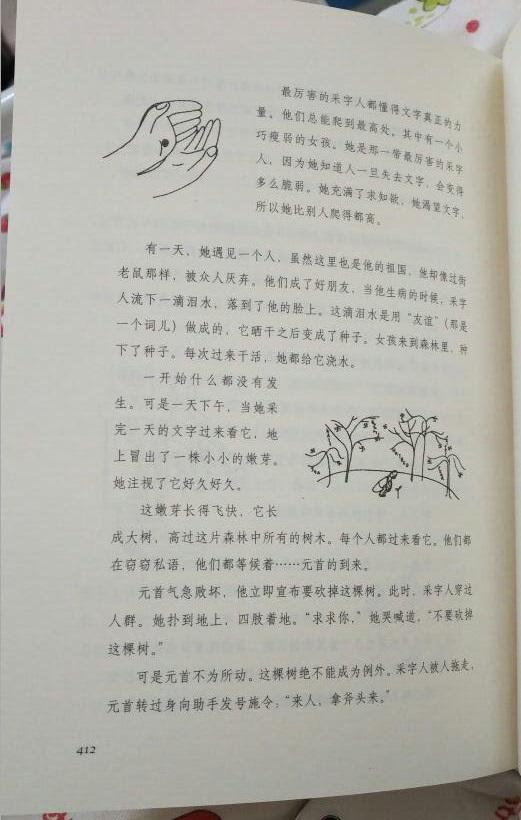 最厉害的采字人都懂得文字真正的力
量。他们总能爬到最高处。其中有一个小
巧瘦弱的女孩。她是那一带最厉害的采字
人，因为她知道人一旦失去文字，会变得
多么脆弱。她充满了求知欲，她渴望文字，
所以她比别人爬得都高。
有一天，她遇见一个人，虽然这里也是他的祖国，他却像过街
老鼠那样，被众人厌弃。他们成了好朋友，当他生病的时候，采字
人流下一滴泪水，落到了他的脸上。这滴泪水是用“友谊”（那是
一个词儿）做成的，它晒干之后变成了种子。女孩来到森林里，种
下了种子。每次过来干活，她都给它浇水。
一开始什么都没有发
生。可是一天下午，当她采
完一天的文字过来看它，地
上冒出了一株小小的嫩芽。
她注视了它好久好久。
这嫩芽长得飞快，它长
成大树，高过这片森林中所有的树木。每个人都过来看它。他们都
在窃窃私语，他们都等候着……元首的到来。
元首气急败坏，他立即宣布要砍掉这棵树。此时，采字人穿过
人群。她扑到地上，四肢着地。“求求你，”她哭喊道，“不要砍掉
这棵树。”
可是元首不为所动。这棵树绝不能成为例外。采字人被人拖走，
元首转过身向助手发号施令：“来人，拿斧头来。”
412